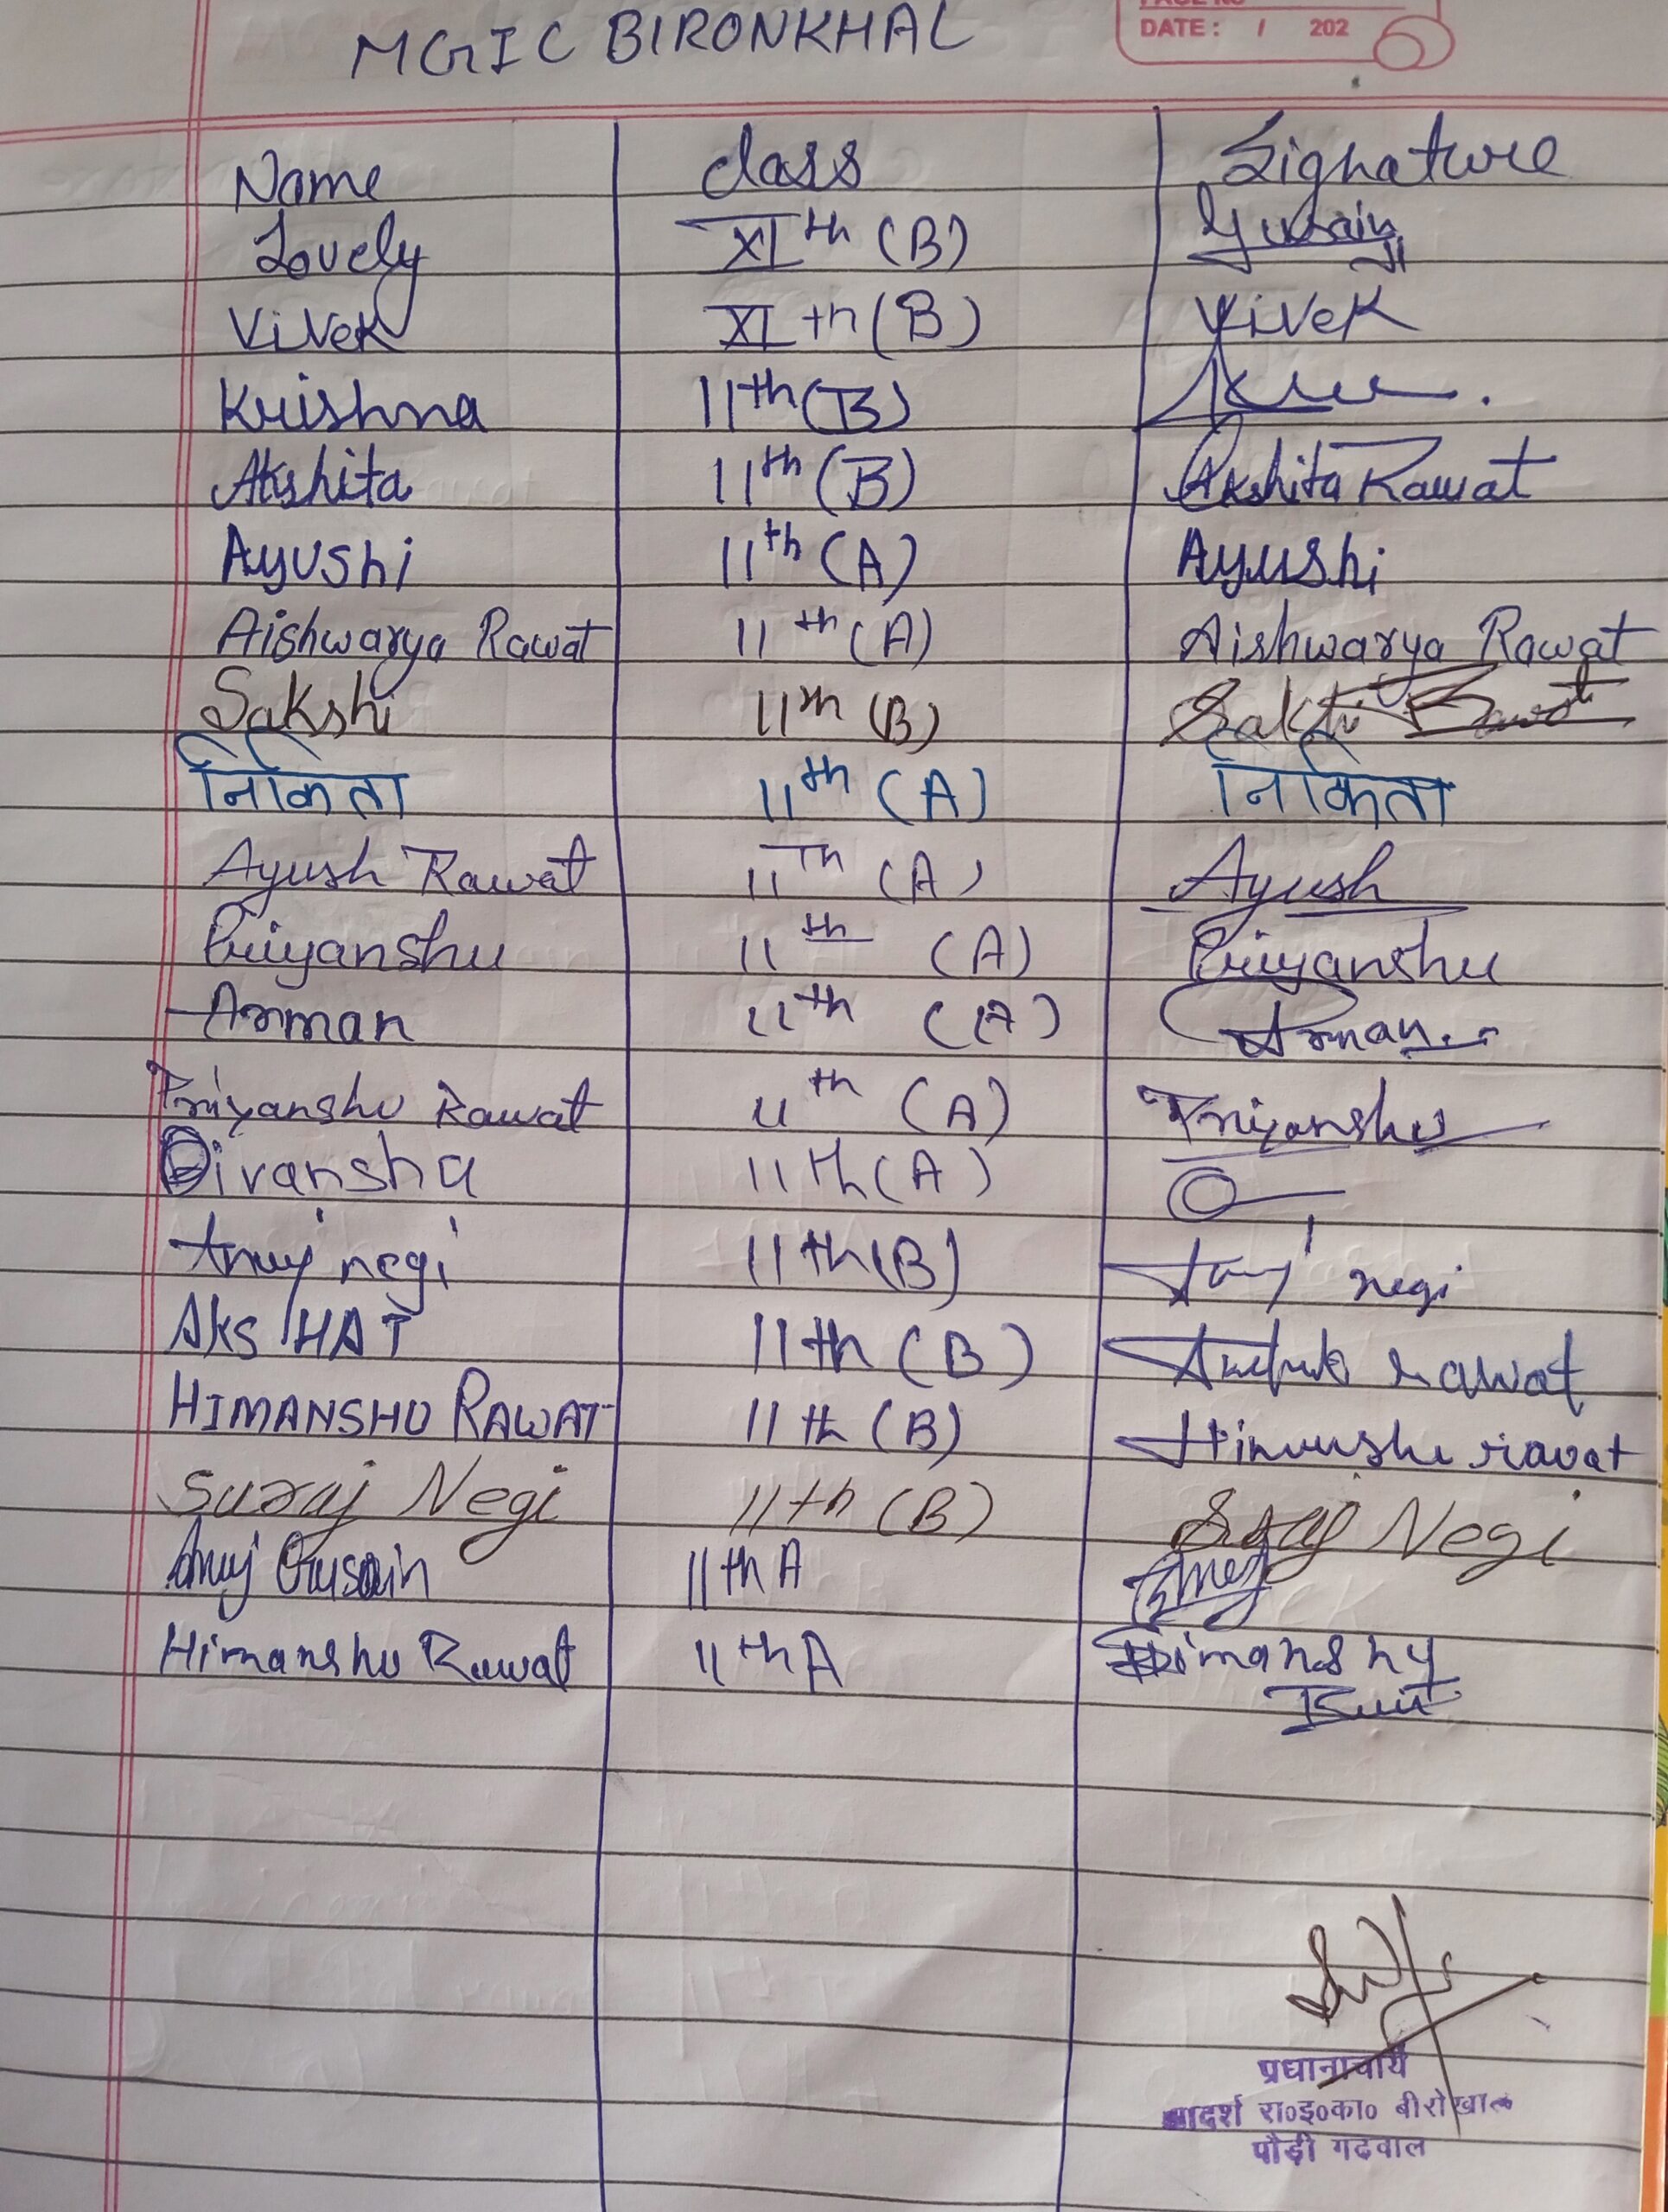 MGIC BIRONKHAL
DATE: / 202
Name Class Signature
Lovely XIth (B) Gusain
Vivek XIth (B) Vivek
Krishna 11th (B)
Akshita 11th (B) Akshita Rawat
Ayushi 11th (A) Ayushi
Aishwarya Rawat 11th (A) Aishwarya Rawat
Sakshi 11th (B) Sakshi Rawat
निकिता 11th (A) निकिता
Ayush Rawat 11Th (A) Ayush
Priyanshu 11th (A) Priyanshu
Arman 11th (A) Arman
Priyanshu Rawat 11th (A) Priyanshu
Divansha 11th (A)
Anuj negi 11th (B) Anuj negi
AksHAT 11th (B) rawat
HIMANSHU RAWAT 11th (B) Himanshu rawat
Suraj Negi 11th (B) Suraj Negi
Anuj Gusain 11th A Anuj
Himanshu Rawat 11th A Himanshu
प्रधानाचार्य
आदर्श रा०इ०का० बीरोंखाल
पौड़ी गढवाल